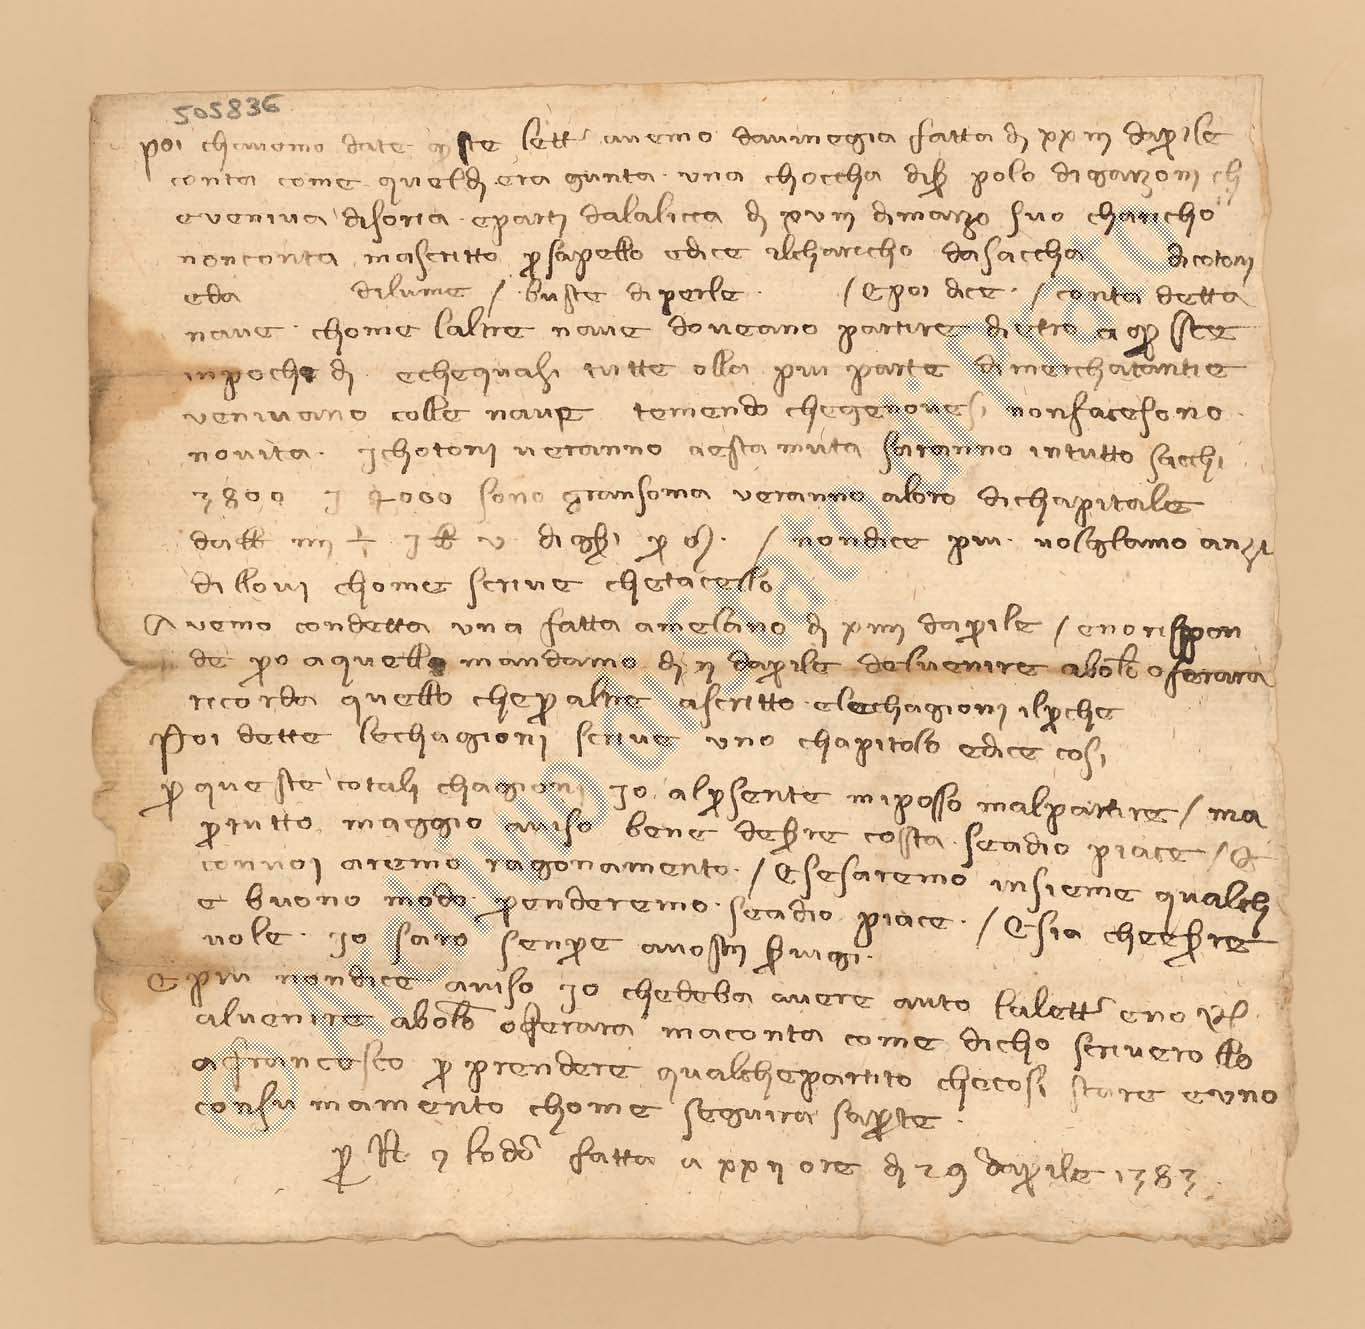 505836
poi chavemo date q̄ste lett avemo davinegia fatta dì xxiii d'aprile
conta come queldì era gunta una choccha diß polo digarzoni ch
eveniva disoria eparti dalalicca dì xviii dimarzo suo charicho
nonconta mascritto p̄ sapello edice ilcharicho dasaccha dicotoni
eda dilume / buste diperle / E poi dice / conta detta
nave chome laltre nave doveano partire dietro a q̄ste
inpochi dì echequasi tutte olla piu parte dimerchatantie
venivano colle nave temendo chegenovesi nonfacesono
novita Ichotoni veranno aesta muta saranno intutto sacchi
3800 I 4000 sono gransoma veranno aloro dichapitale
/ nondice piu vosglamo anzi
dillovi chome scrive chetacello
Avemo condetta una fatta amelano dì xviiii dap̄ile / enorispon
de p̄o aquello mandamo dì ii dap̄ile delvenire abolō oferara
ricorda quello chep̄ altre ascritto elechagioni ilp̄che
Poi dette lechagioni scrive uno chapitolo edice cosi
p̄ queste cotali chagioni Io alp̄sente miposso malpartire / ma
p̄ tutto maggio aviso bene deßre costa seadio piace / E
convoi aremo ragonamento / Esesaremo insieme qualch
e buono modo p̄enderemo seadio piace / Esia cheeßre
vole Io saro senp̄e avostri ßvigi
E piu nondice aviso Io chedeba avere auto lalett eno
alvenire abolō oferara maconta come dicho scriverollo
afrancesco p̄ prendere qualchepartito checosi stare euno
consumamento chome seguira sap̄te
fatta a xxii ore dì 29 dap̄ile 1383
© Archivio di Stato di Prato